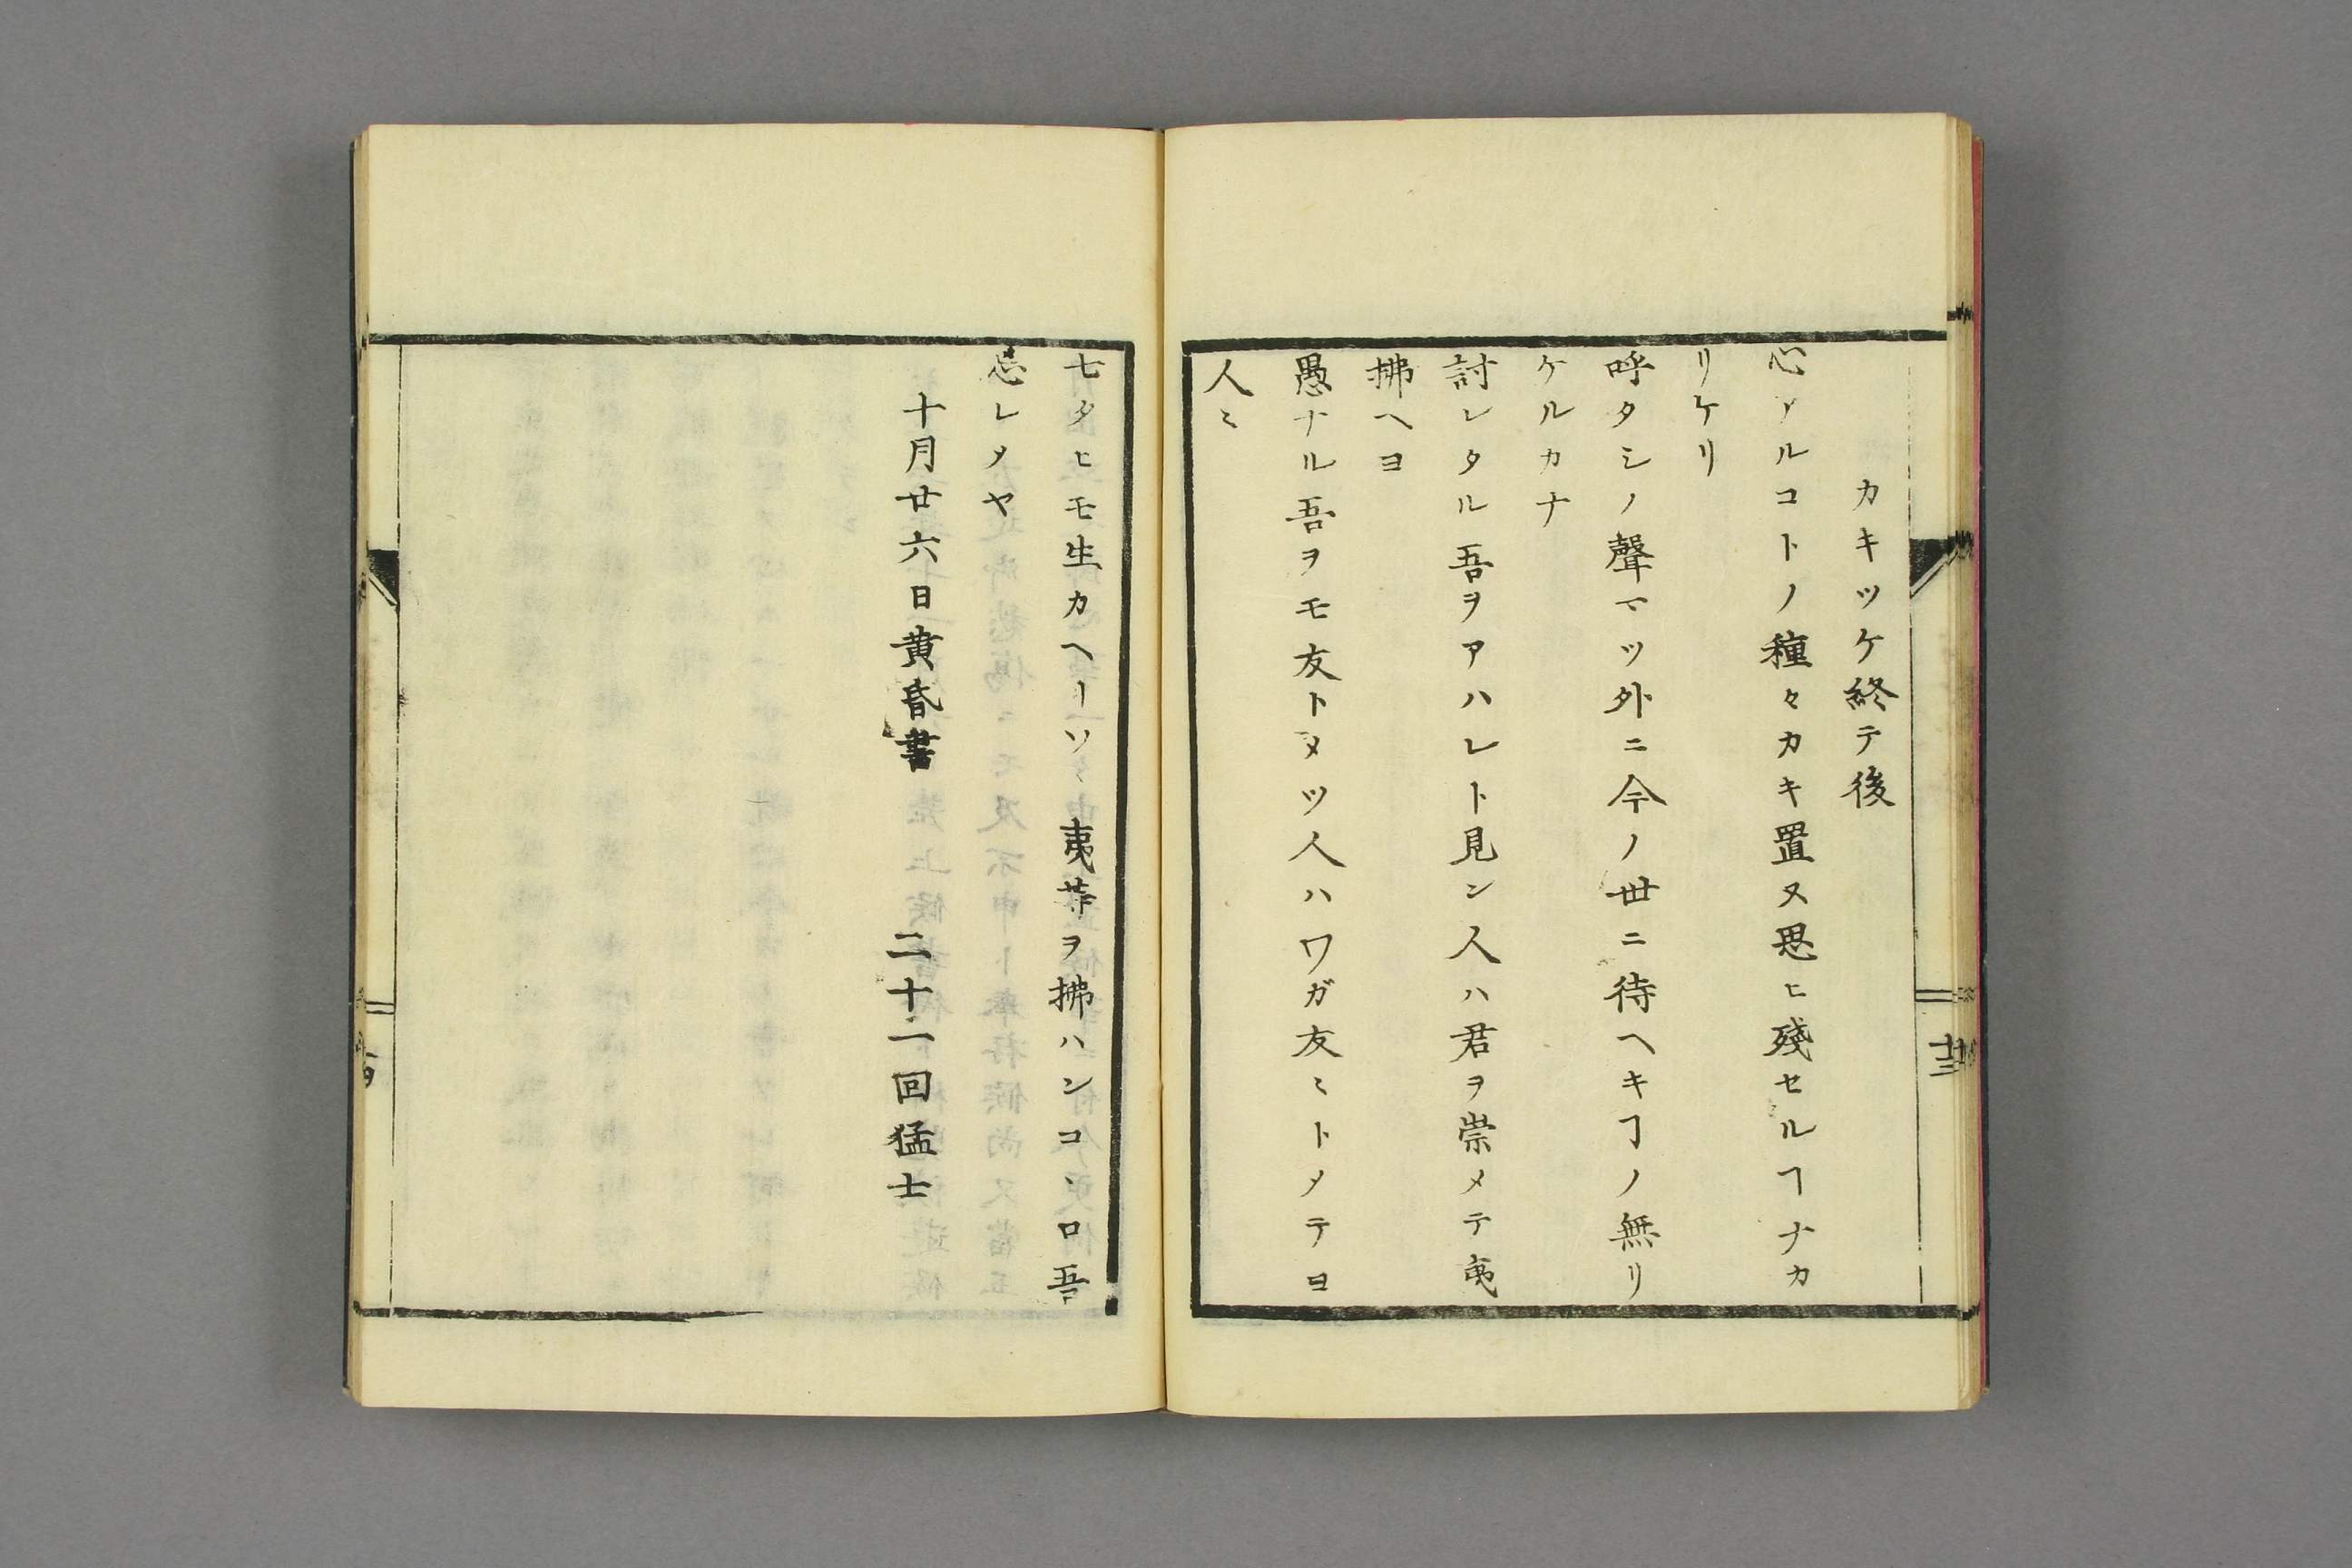 カキツケ終テ後
心アルコトノ種々カキ置ヌ思ヒ殘セルヿナカ
リケリ
呼タシノ聲マツ外ニ今ノ世ニ待ヘキヿノ無リ
ケルカナ
討レタル吾ヲアハレト見ン人ハ君ヲ崇メテ夷
拂ヘヨ
愚ナル吾ヲモ友トメツ人ハワガ友〻トメテヨ
人〻
十三
七タヒモ生カヘリツヽ夷等ヲ拂ハンコヽロ吾
忘レメヤ
十月廿六日黄昏書 二十一回猛士